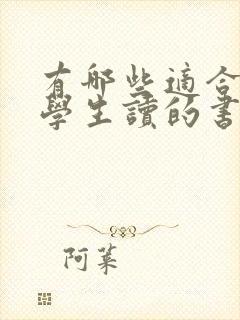 有哪些適合
學生讀的書
阿菜